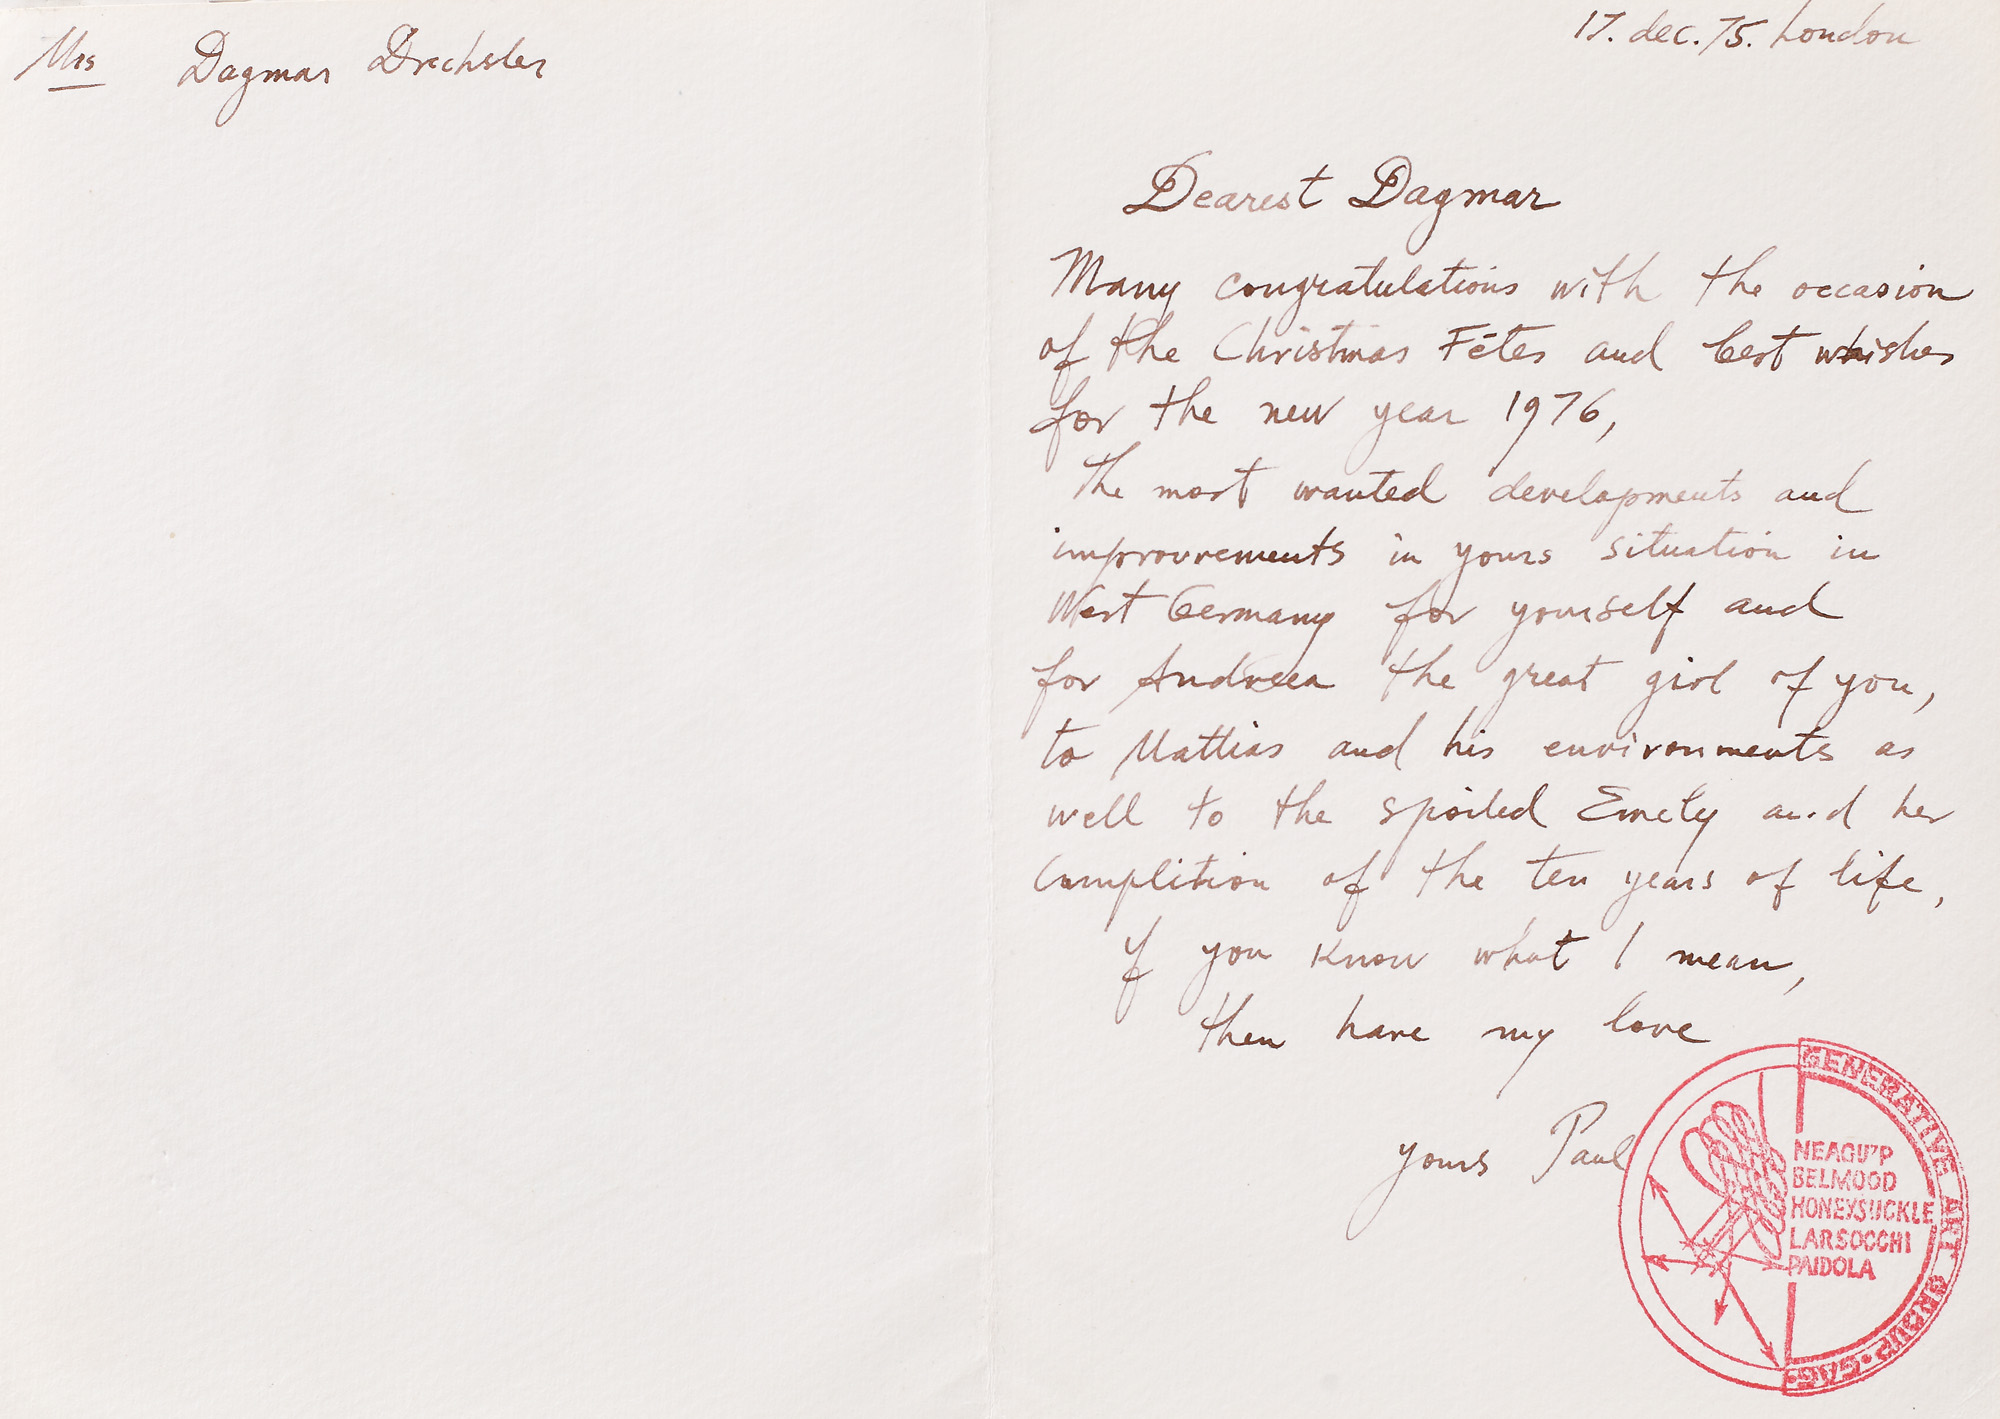 Mrs Dagmar Drechsler
17. dec. 75. London
Dearest Dagmar
Many congratulations with the occasion
of the Christmas Fêtes and best whishes
for the new year 1976,
The most wanted developments and
improvements in yours situation in
West Germany for yourself and
for Andreea the great girl of you,
to Mattias and his environments as
well to the spoiled Emely and her
complition of the ten years of life,
if you know what I mean,
then have my love
yours Paul
GENERATIVE ART GROUP • GAG •
NEAGU'P
BELMOOD
HONEYSUCKLE
LARSOCCHI
PAIDOLA